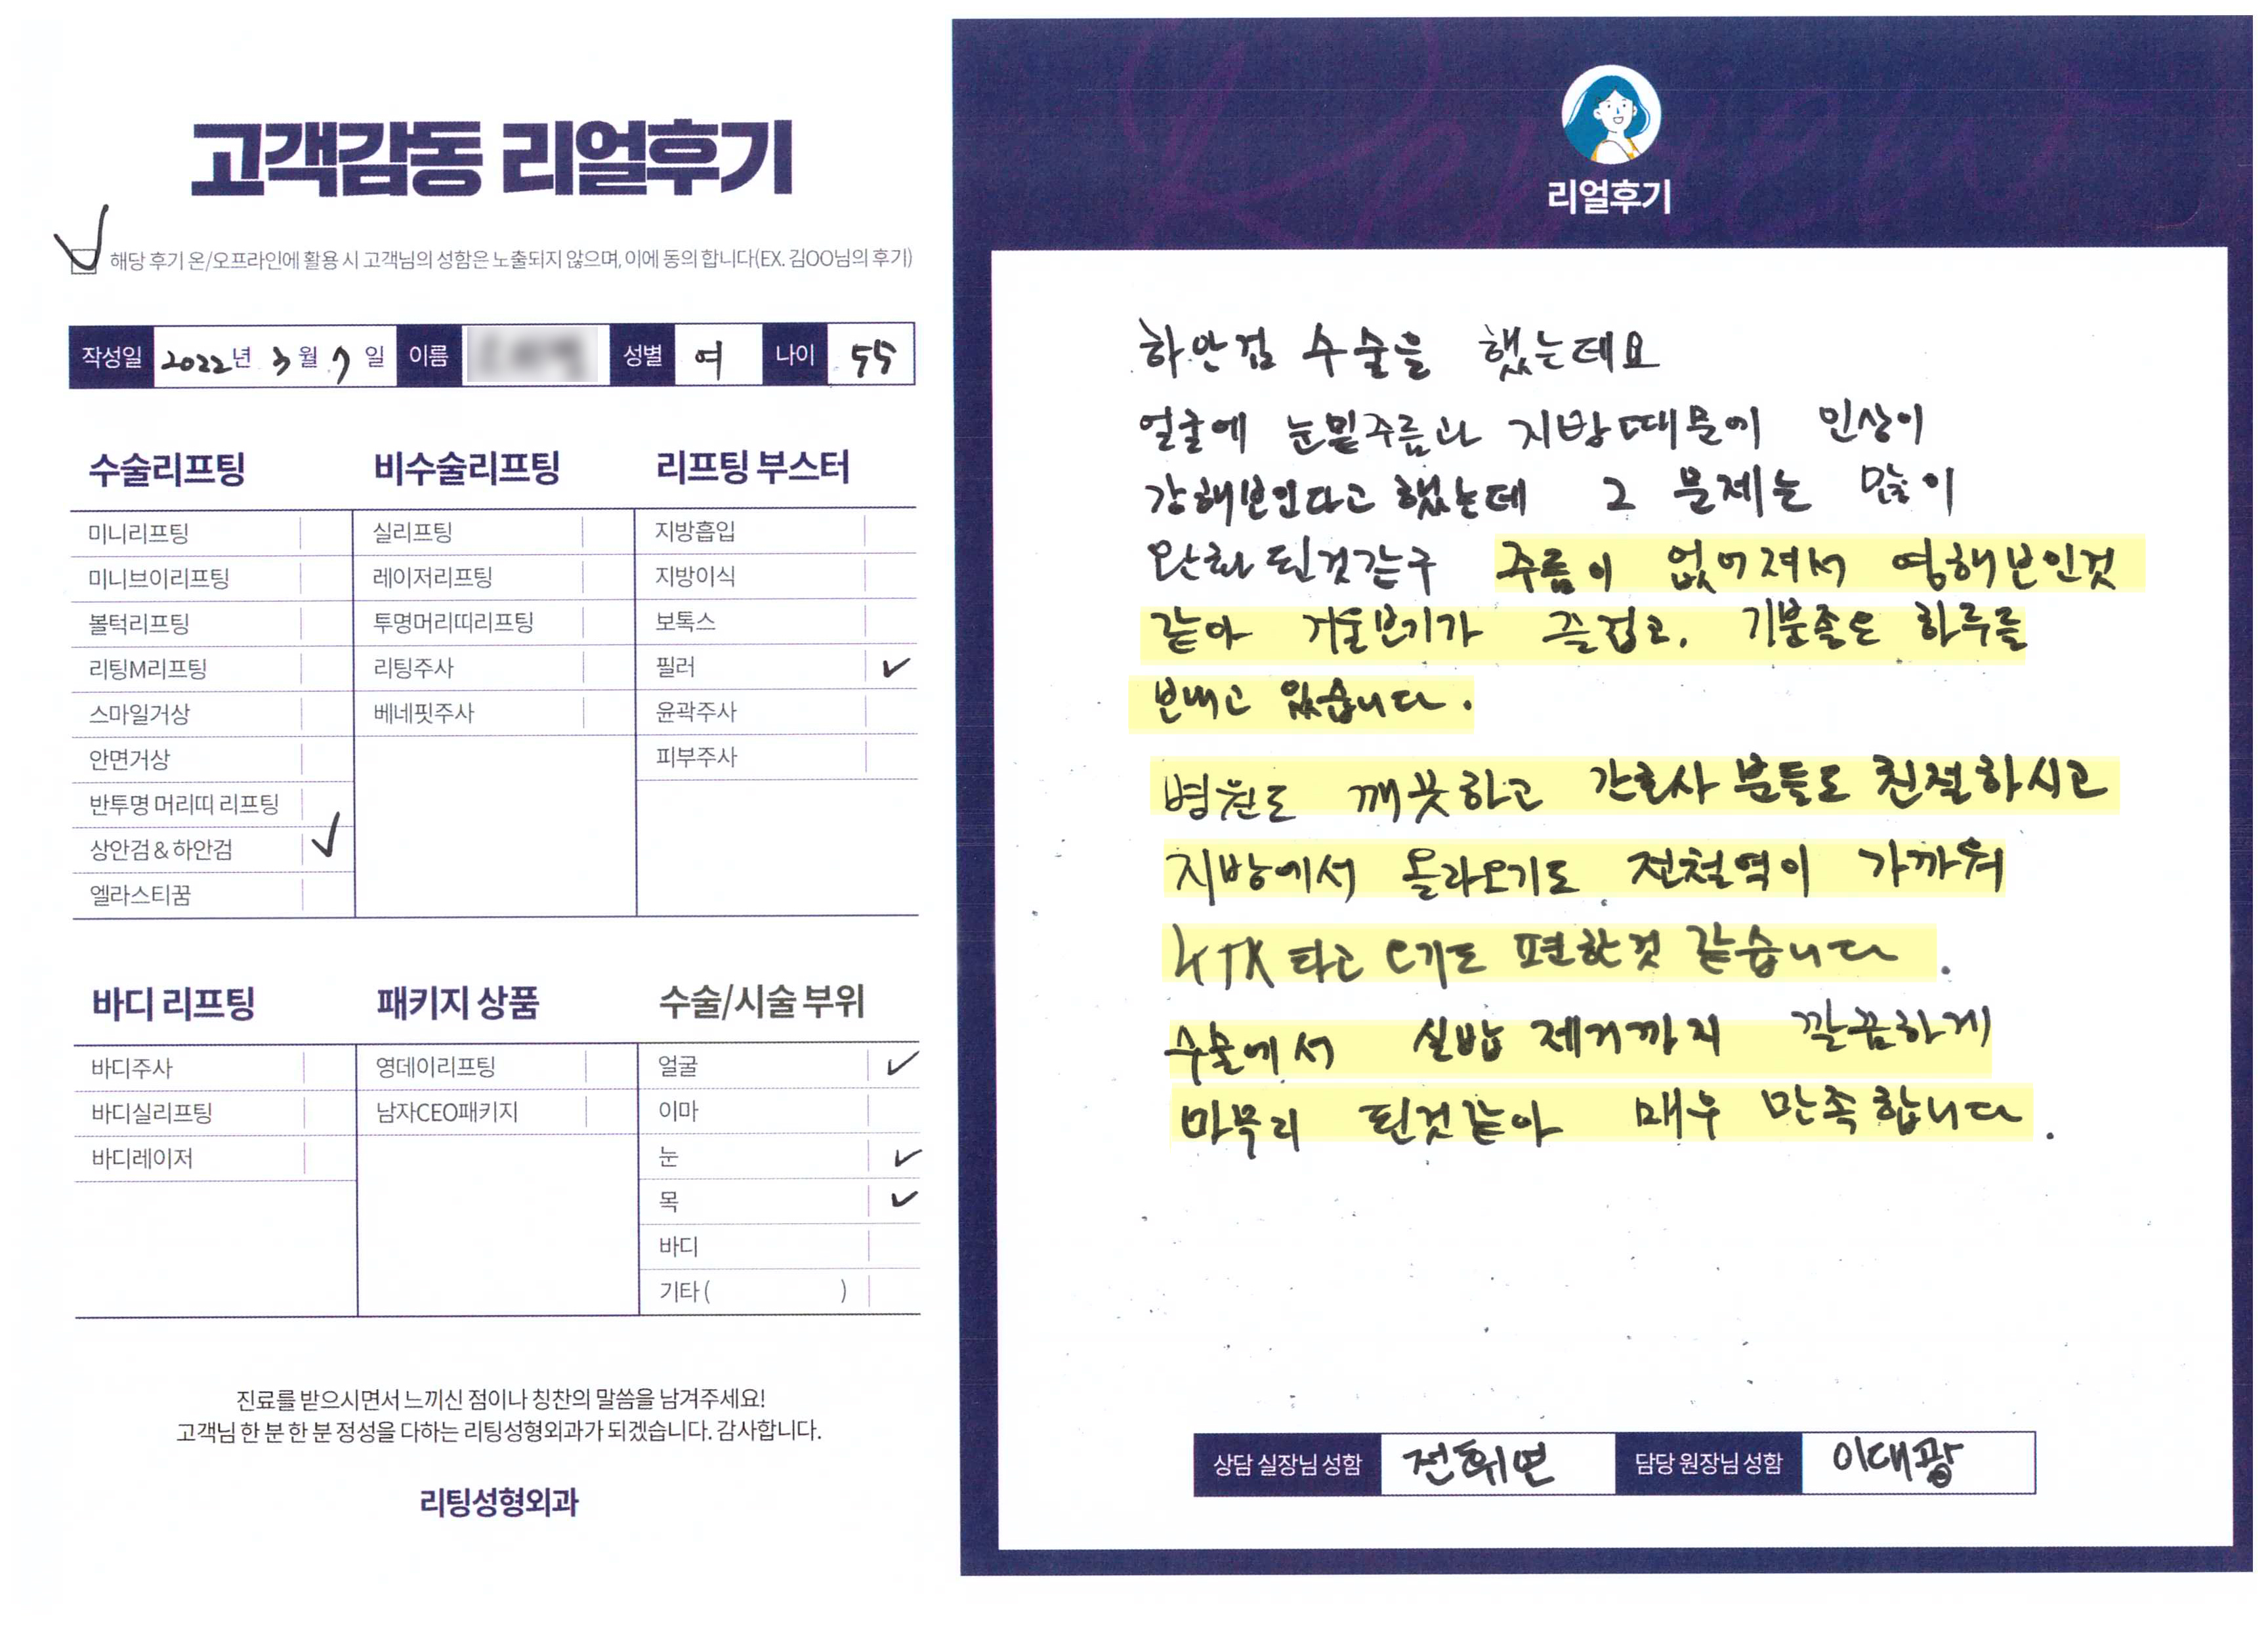 고객감동 리얼후기
해당 후기 온/오프라인에 활용 시 고객님의 성함은 노출되지 않으며, 이에 동의 합니다(EX. 김OO님의 후기)
작성일 2022년 3월 7일 이름 성별 여 나이 55
수술리프팅
미니리프팅
미니브이리프팅
볼턱리프팅
리팅M리프팅
스마일거상
안면거상
반투명 머리띠 리프팅
상안검 & 하안검
엘라스티꿈
비수술리프팅
실리프팅
레이저리프팅
투명머리띠리프팅
리팅주사
베네핏주사
리프팅 부스터
지방흡입
지방이식
보톡스
필러
윤곽주사
피부주사
바디 리프팅
바디주사
바디실리프팅
바디레이저
패키지 상품
영데이리프팅
남자CEO패키지
수술/시술 부위
얼굴
이마
눈
목
바디
기타 ( )
진료를 받으시면서 느끼신 점이나 칭찬의 말씀을 남겨주세요!
고객님 한 분 한 분 정성을 다하는 리팅성형외과가 되겠습니다. 감사합니다.
리팅성형외과
리얼후기
하안검 수술을 했는데요
얼굴에 눈밑주름과 지방때문에 인상이
강해보인다고 했는데 그 문제는 많이
완화 된것같구 주름이 없어져서 영해보인것
같아 거울보기가 즐겁고, 기분좋은 하루를
보내고 있습니다.
병원도 깨끗하고 간호사 분들도 친절하시고
지방에서 올라오기도 전철역이 가까워
KTX 타고 오기도 편한것 같습니다.
수술에서 실밥 제거까지 깔끔하게
마무리 된것같아 매우 만족합니다.
상담 실장님 성함 전휘연 담당 원장님 성함 이대광